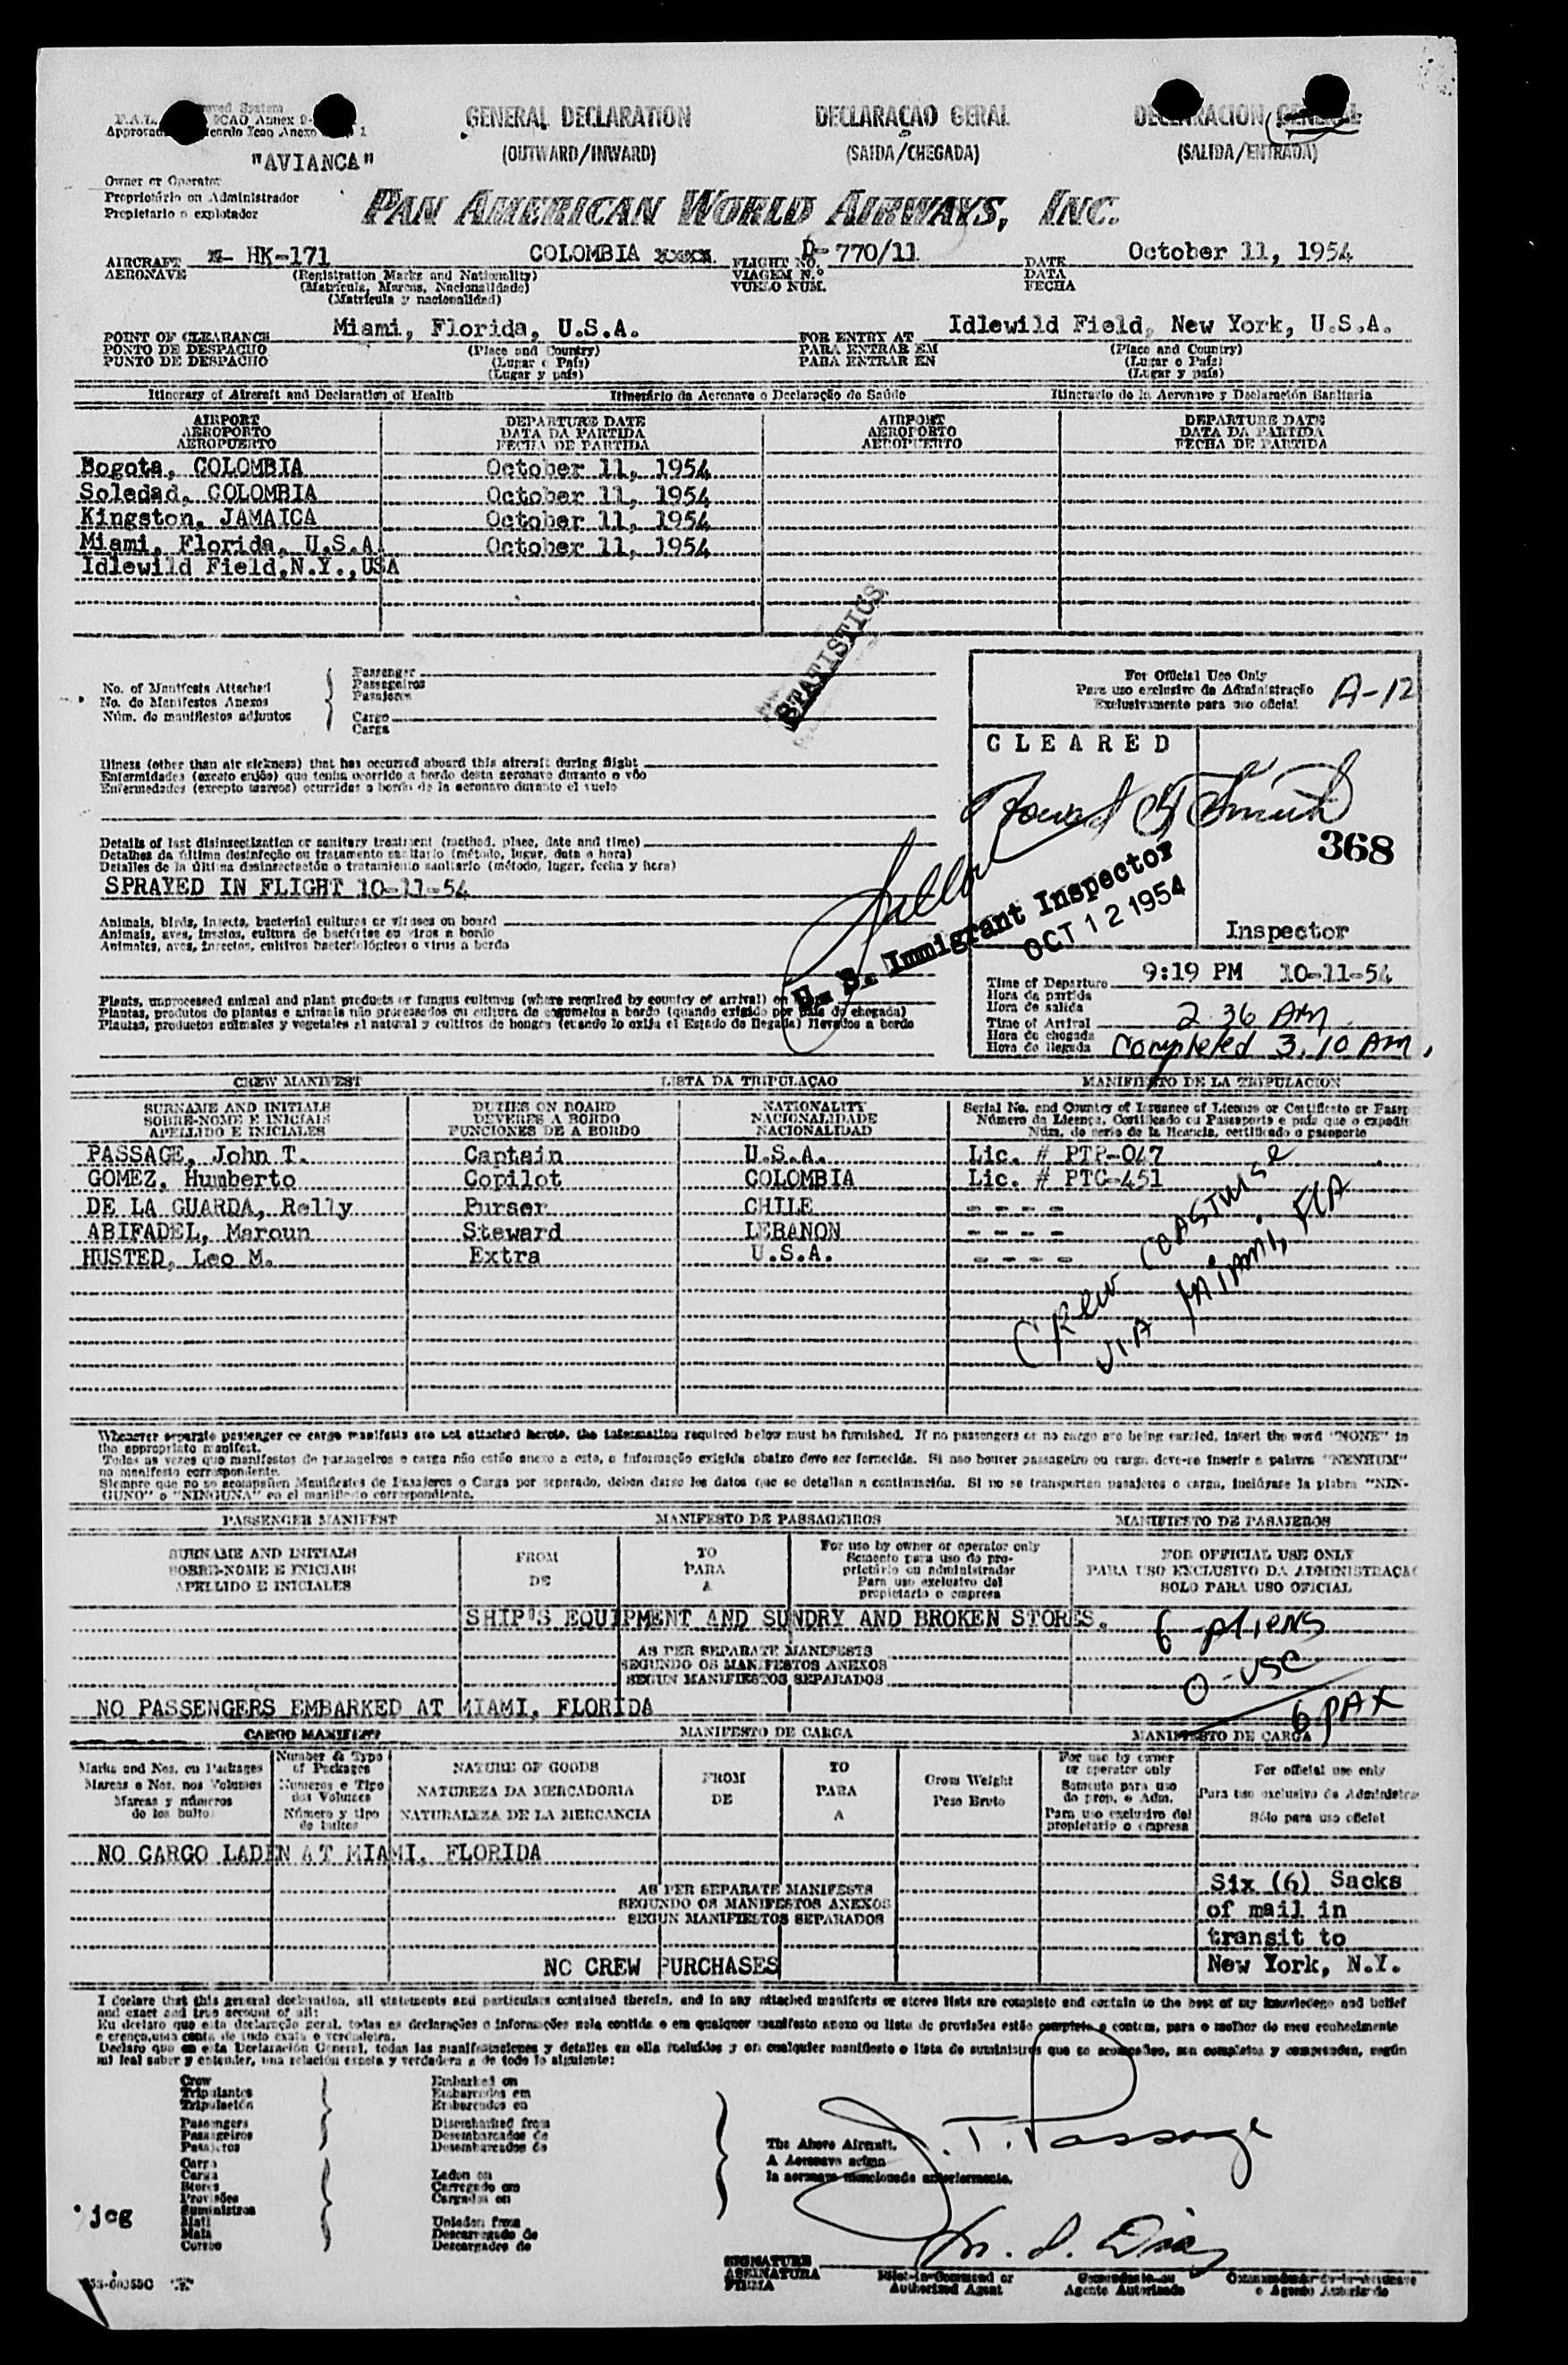 GENERAL DECLARATION
(OUTWARD/INWARD)
DECLARAÇAO GERAL
(SAIDA/CHEGADA)
(SALIDA/ENTRADA)
"AVIANCA"
Owner or Operator
Propriotário ou Administrador
Propietario o explotador
PAN AMERICAN WORLD AIRWAYS, INC.
AIRCRAFT HK-171 COLOMBIA FLIGHT NO. D-770/11 DATE October 11, 1954
AERONAVE (Registration Marks and Nationality) VIAGEM N.º DATA
(Matrícula, Marcas, Nacionalidade) VUELO NUM. FECHA
(Matrícula y nacionalidad)
POINT OF CLEARANCE Miami, Florida, U.S.A. FOR ENTRY AT Idlewild Field, New York, U.S.A.
PONTO DE DESPACHO (Place and Country) PARA ENTRAR EM (Place and Country)
PUNTO DE DESPACHO (Lugar e País) PARA ENTRAR EN (Lugar e País)
(Lugar y país) (Lugar y país)
Itinerary of Aircraft and Declaration of Health Itinerário da Aeronave e Declaração de Saúde Itinerario de la Aeronave y Declaración Sanitaria
AIRPORT DEPARTURE DATE AIRPORT DEPARTURE DATE
AEROPORTO DATA DA PARTIDA AEROPORTO DATA DA PARTIDA
AEROPUERTO FECHA DE PARTIDA AEROPUERTO FECHA DE PARTIDA
Bogota, COLOMBIA October 11, 1954
Soledad, COLOMBIA October 11, 1954
Kingston, JAMAICA October 11, 1954
Miami, Florida, U.S.A. October 11, 1954
Idlewild Field,N.Y.,USA
STATISTICS
No. of Manifests Attached
No. de Manifestos Anexos
Núm. de manifiestos adjuntos
Passenger
Passageiros
Pasajeros
Cargo
Carga
For Official Use Only
Para uso exclusivo da Administração
Exclusivamente para uso oficial
A-12
CLEARED
368
Inspector
U. S. Immigrant Inspector
OCT 12 1954
Illness (other than air sickness) that has occurred aboard this aircraft during flight
Enfermidades (exceto enjôo) que tenha ocorrido a bordo desta aeronave durante o vôo
Enfermedades (excepto mareos) ocurridas a bordo de la aeronave durante el vuelo
Details of last disinsectization or sanitary treatment (method, place, date and time)
Detalhes da última desinfeção ou tratamento sanitario (método, lugar, data e hora)
Detalles de la última desinsectación o tratamiento sanitario (método, lugar, fecha y hora)
SPRAYED IN FLIGHT 10-11-54
Animals, birds, insects, bacterial cultures or viruses on board
Animais, aves, insetos, cultura de bactérias ou virus a bordo
Animales, aves, insectos, cultivos bacteriológicos o virus a bordo
Plants, unprocessed animal and plant products or fungus cultures (where required by country of arrival) on
Plantas, produtos de plantas e animais não processados ou cultura de cogumelos a bordo (quando exigido por pais de chegada)
Plantas, productos animales y vegetales al natural y cultivos de hongos (cuando lo exija el Estado de llegada) llevados a bordo
Time of Departure 9:19 PM 10-11-54
Hora da partida
Hora de salida
Time of Arrival 2 36 AM
Hora da chegada
Hora de llegada Completed 3.10 AM.
CREW MANIFEST LISTA DA TRIPULAÇAO MANIFIESTO DE LA TRIPULACION
SURNAME AND INITIALS DUTIES ON BOARD NATIONALITY Serial No. and Country of Issuance of License or Certificate or
SOBRE-NOME E INICIAIS DEVERES A BORDO NACIONALIDADE Número da Licença, Certificado ou Passaporte e pais que o
APELLIDO E INICIALES FUNCIONES DE A BORDO NACIONALIDAD Núm. de serie de la licencia, certificado o pasaporte
PASSAGE, John T. Captain U.S.A. Lic. # PTP-047
GOMEZ, Humberto Copilot COLOMBIA Lic. # PTC-451
DE LA GUARDA, Relly Purser CHILE - - - -
ABIFADEL, Maroun Steward LEBANON - - - -
HUSTED, Leo M. Extra U.S.A. - - - -
CREW COASTWISE
VIA MIAMI, FLA
Whenever separate passenger or cargo manifests are not attached hereto, the information required below must be furnished. If no passengers or no cargo are being carried, insert the word "NONE" in
the appropriate manifest.
Todas as vezes que manifestos de passageiros e carga não estão anexo a esta, a informação exigida abaixo deve ser fornecida. Si nao houver passageiro ou carga, deve-se inserir a palavra "NENHUM"
no manifesto correspondente.
Siempre que no se acompañen Manifiestos de Pasajeros o Carga por separado, deben darse los datos que se detallan a continuación. Si no se transportan pasajeros o carga, inclúyase la plabra "NIN-
GUNO" o "NINGUNA" en el manifiesto correspondiente.
PASSENGER MANIFEST MANIFESTO DE PASSAGEIROS MANIFIESTO DE PASAJEROS
SURNAME AND INITIALS FROM TO For use by owner or operator only FOR OFFICIAL USE ONLY
SOBRE-NOME E INICIAIS DE PARA Somente para uso do pro- PARA USO EXCLUSIVO DA
APELLIDO E INICIALES A prietário ou administrador SOLO PARA USO OFICIAL
Para uso exclusivo del
propietario o empresa
SHIP'S EQUIPMENT AND SUNDRY AND BROKEN STORES.
6 - Aliens
0 - USC
6 PAX
AS PER SEPARATE MANIFESTS
SEGUNDO OS MANIFESTOS ANEXOS
SEGUN MANIFIESTOS SEPARADOS
NO PASSENGERS EMBARKED AT MIAMI, FLORIDA
CARGO MANIFEST MANIFESTO DE CARGA MANIFIESTO DE CARGA
Marks and Nos. on Packages Number & Type of Packages NATURE OF GOODS FROM TO Gross Weight For use by owner or operator only For official use only
Marcas e Nos. nos Volumes Numeros e Tipo dos Volumes NATUREZA DA MERCADORIA DE PARA Peso Bruto Somente para uso do prop. e Adm. Para uso exclusivo da
Marcas y números de los bultos Número y tipo de bultos NATURALEZA DE LA MERCANCIA A Para uso exclusivo del propietario o empresa Sólo para uso oficial
NO CARGO LADEN AT MIAMI, FLORIDA
AS PER SEPARATE MANIFESTS
SEGUNDO OS MANIFESTOS ANEXOS
SEGUN MANIFIESTOS SEPARADOS
Six (6) Sacks
of mail in
transit to
New York, N.Y.
NO CREW PURCHASES
I declare that this general declaration, all statements and particulars contained therein, and in any attached manifests or stores lists are complete and contain to the best of my knowledge and belief
and exact and true account of all:
Eu declaro que esta declaração geral, todas as declarações e informações nela contida e em qualquer manifesto anexo ou lista de provisões estão completa e contem, para o melhor do meu conhecimento
e crença,uma conta de tudo exata e verdadeira.
Declaro que en esta Declaración General, todas las manifestaciones y detalles en ella incluídos y en cualquier manifiesto o lista de suministros que se acompañen, son completos y comprenden, según
mi leal saber y entender, una relación exacta y verdadera a de todo lo siguiente:
Crew
Tripulantes
Tripulación
Passengers
Passageiros
Pasajeros
Cargo
Carga
Stores
Provisões
Suministros
Mail
Mala
Correo
Embarked on
Embarcados em
Embarcados en
Disembarked from
Desembarcados de
Desembarcados de
Laden on
Carregado em
Cargados en
Unladen from
Descarregado de
Descargados de
The Above Aircraft.
A Aeronave acima
la aeronave mencionada anteriormente.
J. T. Passage
jcg
SIGNATURE
ASSINATURA
FIRMA
Pilot-in-Command or
Authorized Agent
Comandante ou
Agente Autorizado